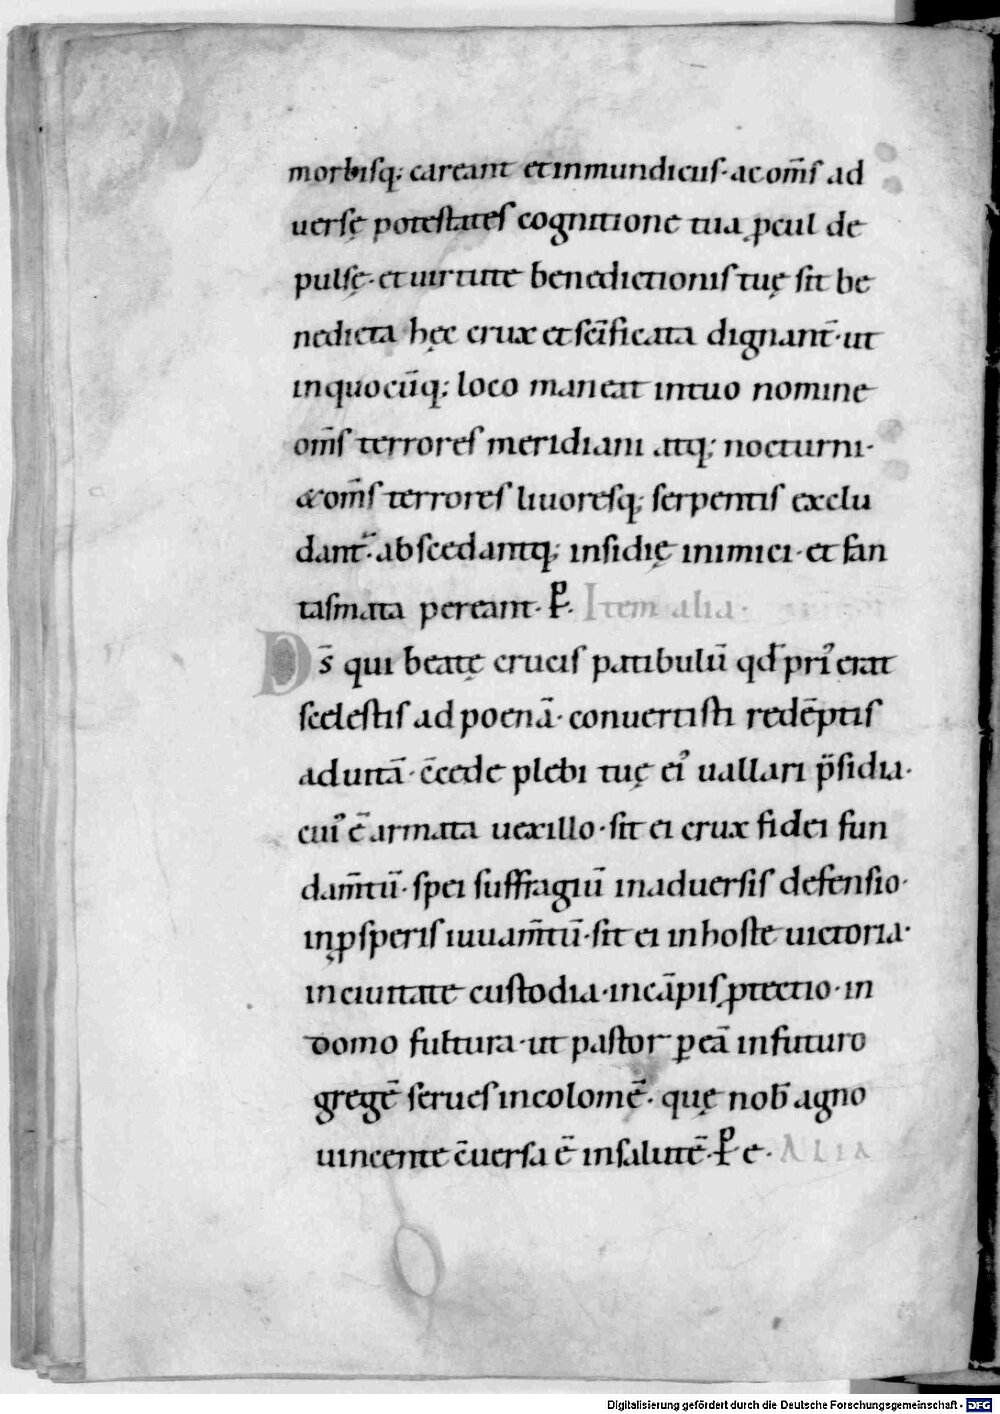 morbisq; careant et inmundicus· ac om̄s ad
uersę potestates cognitione tua ꝓcul de
pulsę· et uirtute benedictionis tuę sit be
nedicta hęc crux et sc̄ificata dignant̄· ut
in quocūq; loco maneat in tuo nomine
om̄s terrores meridiani atq; nocturni·
& om̄s terrores liuoresq; serpentis exclu
dant᷑· abscedantq; insidię inimici· et fan
tasmata pereant· P̄· Item alia·
Ds̄ qui beatę crucis patibulū qd̄ pri᾽ erat
scelestis ad poenā· conuertisti redēptis
ad uitā· c̄cede plebi tuę ei᾽ uallari p̄sidia·
cui᾽ ē armata uexillo· sit ei crux fidei fun
dam̄tū· spei suffragiū in aduersis defensio·
in ꝓsperis iuuam̄tū· sit ei in hoste uictoria·
in ciuitate custodia· in cāpis ꝓtectio· in
domo fultura· ut pastor ꝑ eā in futuro
gregē serues incolomē· quę nob̄ agno
uincente c̄uersa ē in salutē· P̄ e· ALIA
Digitalisierung gefördert durch die Deutsche Forschungsgemeinschaft - DFG